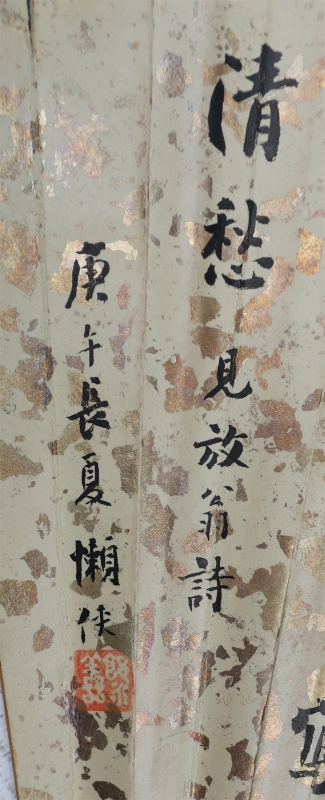 清愁見放翁詩
庚午長夏懶俠